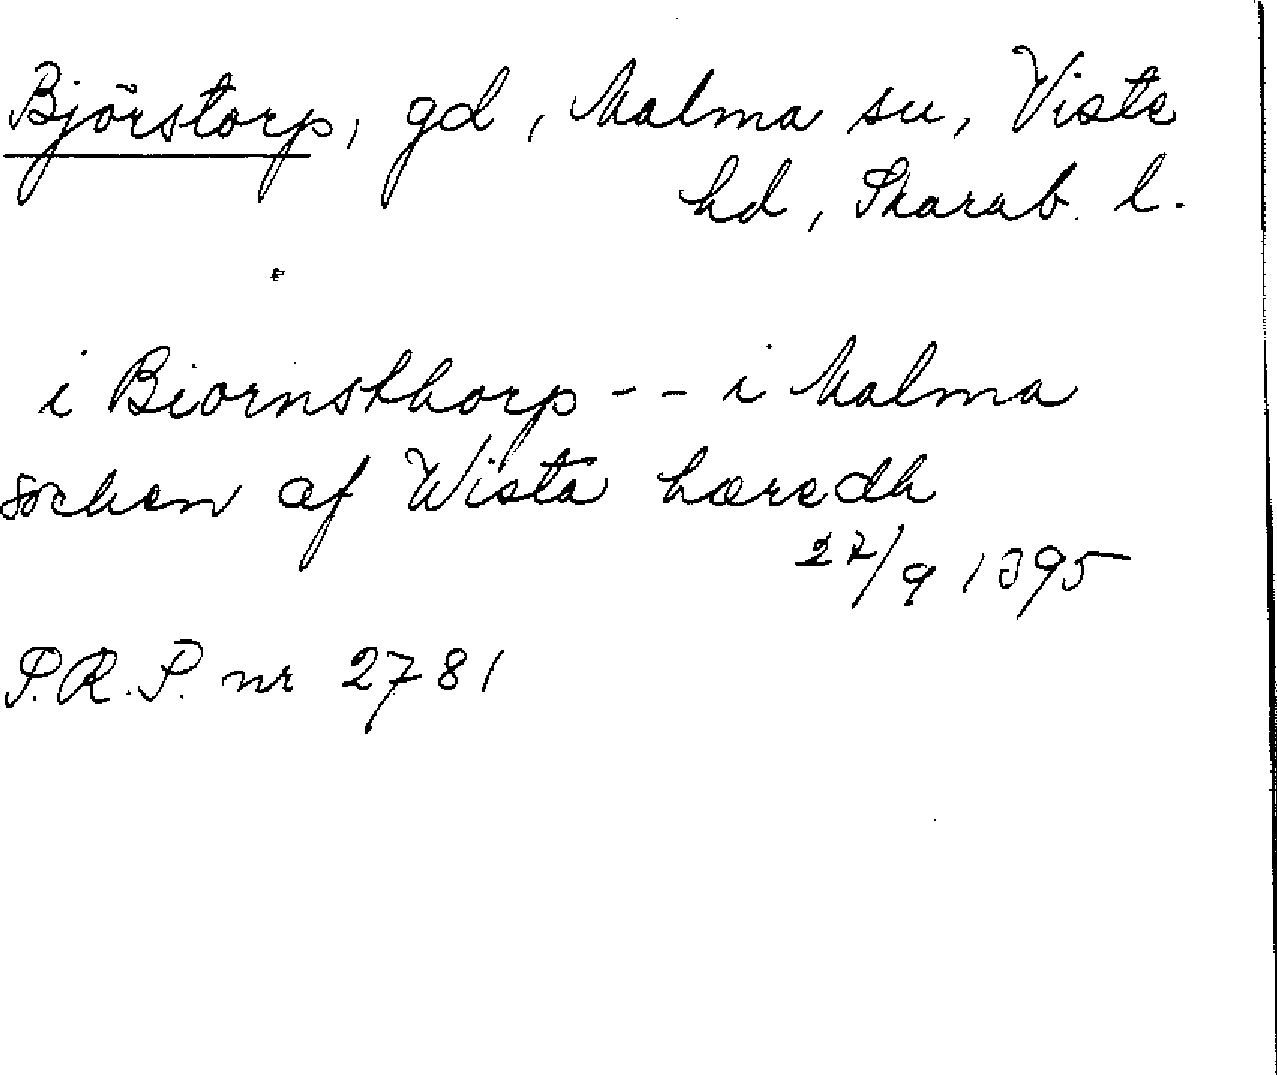 Björstorp, gd, Malma sn, Viste
hd, Skarab. l.
i Biornsthorp - - i Malma
sochen af Wista hæredh
27/9 1395
P.R.P. nr 2781